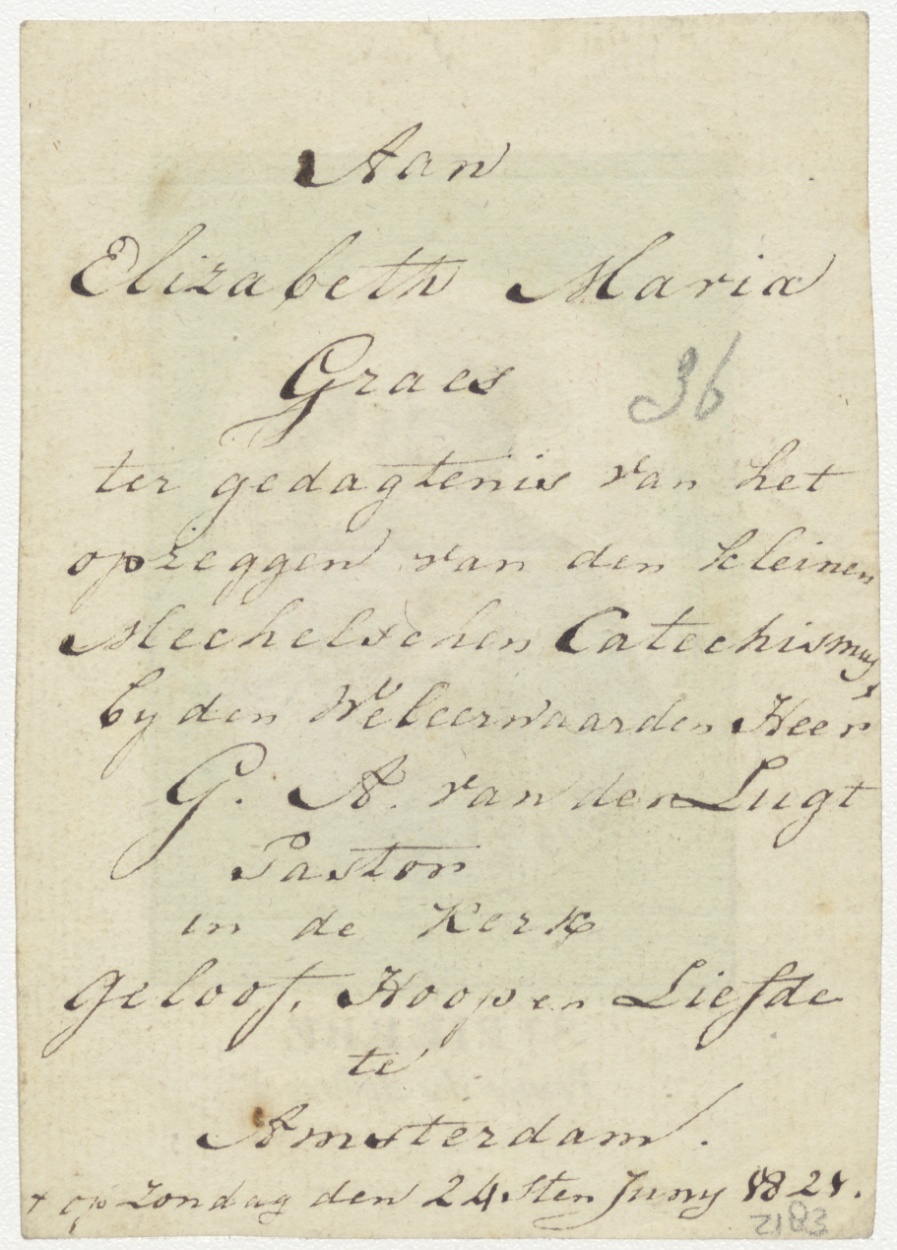 Aan
Elizabeth Maria
Graes
36
ter gedagtenis van het
opzeggen van den kleinen
Mechelschen Catechismus
by den WelEerwaarden Heer
G. A. van der Lugt
Pastor
in de Kerk
geloof, Hoop en Liefde
te
Amsterdam.
op zondag den 24sten Juny 1821.
2183